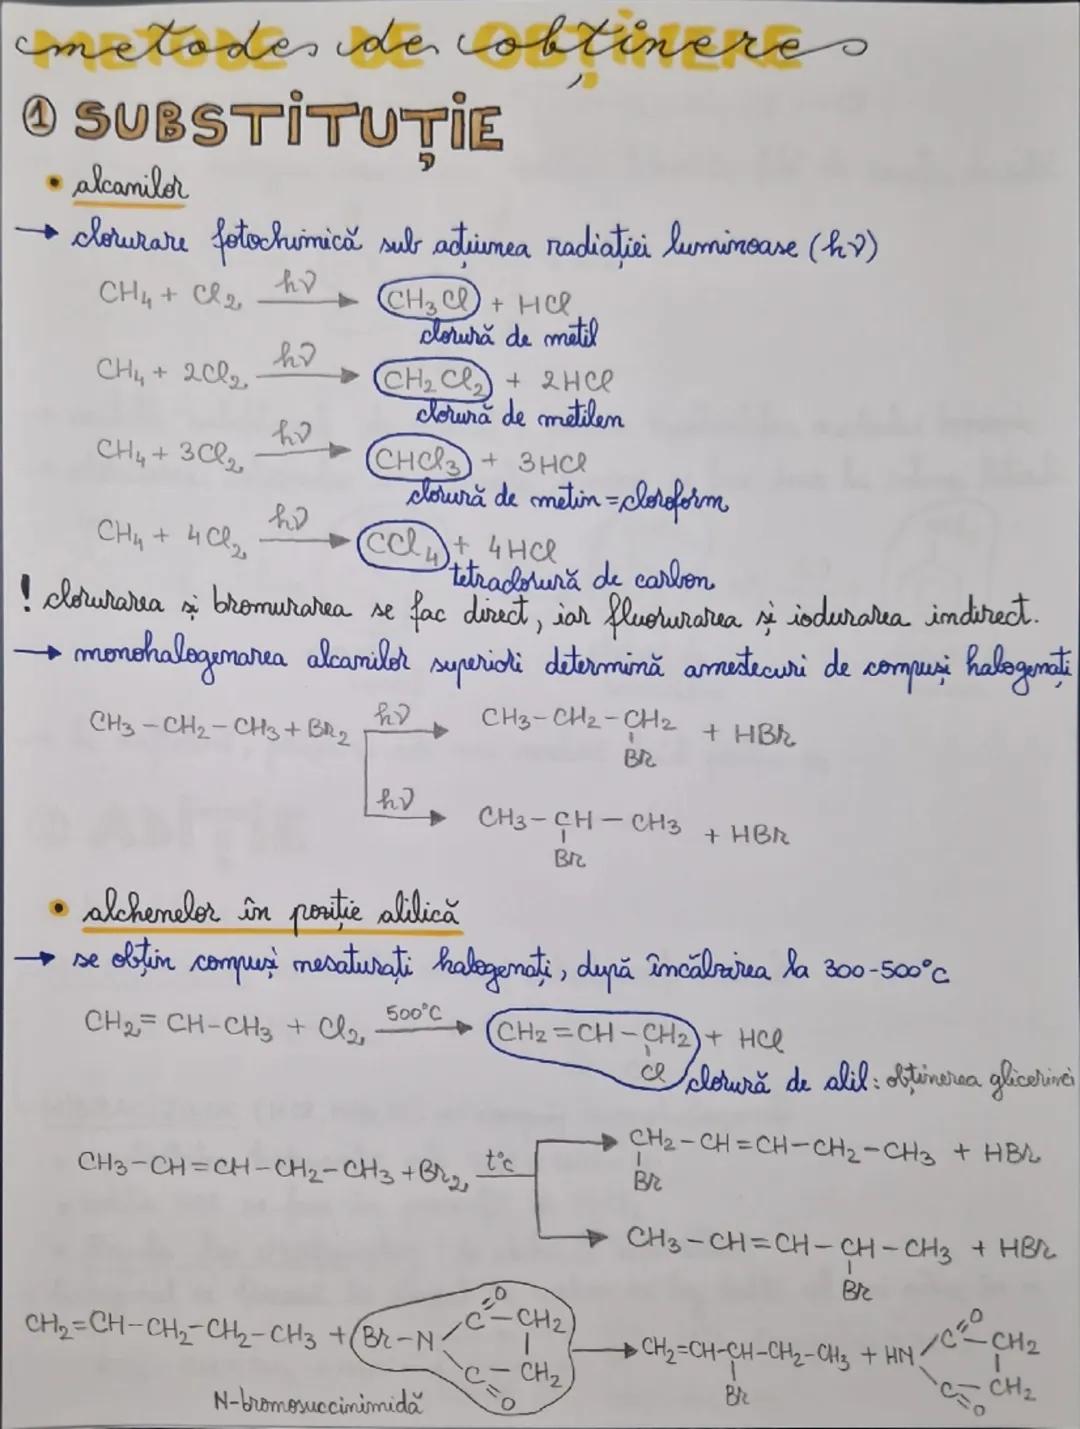 metode de obținere
① SUBSTITUȚIE
• alcanilor
→ clorurare fotochimică sub acțiunea radiației luminoase (hν)
CH₄ + Cl₂ hν → CH₃Cl + HCl
clorură de metil
CH₄ + 2Cl₂ hν → CH₂Cl₂ + 2HCl
clorură de metilen
CH₄ + 3Cl₂ hν → CHCl₃ + 3HCl
clorură de metin = cloroform
CH₄ + 4Cl₂ hν → CCl₄ + 4HCl
tetraclorură de carbon
! clorurarea și bromurarea se fac direct, iar fluorurarea și iodurarea indirect.
→ monohalogenarea alcanilor superiori determină amestecuri de compuși halogenați
CH₃-CH₂-CH₃ + Br₂ hν → CH₃-CH₂-CH₂ + HBr
Br
hν → CH₃-CH-CH₃ + HBr
Br
• alchenelor în poziție alilică
→ se obțin compuși nesaturați halogenați, după încălzirea la 300-500°C
CH₂=CH-CH₃ + Cl₂ 500°C → CH₂=CH-CH₂ + HCl
Cl clorură de alil: obținerea glicerinei
→ CH₂-CH=CH-CH₂-CH₃ + HBr
CH₃-CH=CH-CH₂-CH₃ + Br₂ t°C Br
→ CH₃-CH=CH-CH-CH₃ + HBr
Br
CH₂=CH-CH₂-CH₂-CH₃ + Br-N C=O -CH₂ CH₂ - C=O → CH₂=CH-CH-CH₂-CH₃ + HN C=O -CH₂ CH₂ - C=O
N-bromosuccinimidă Br